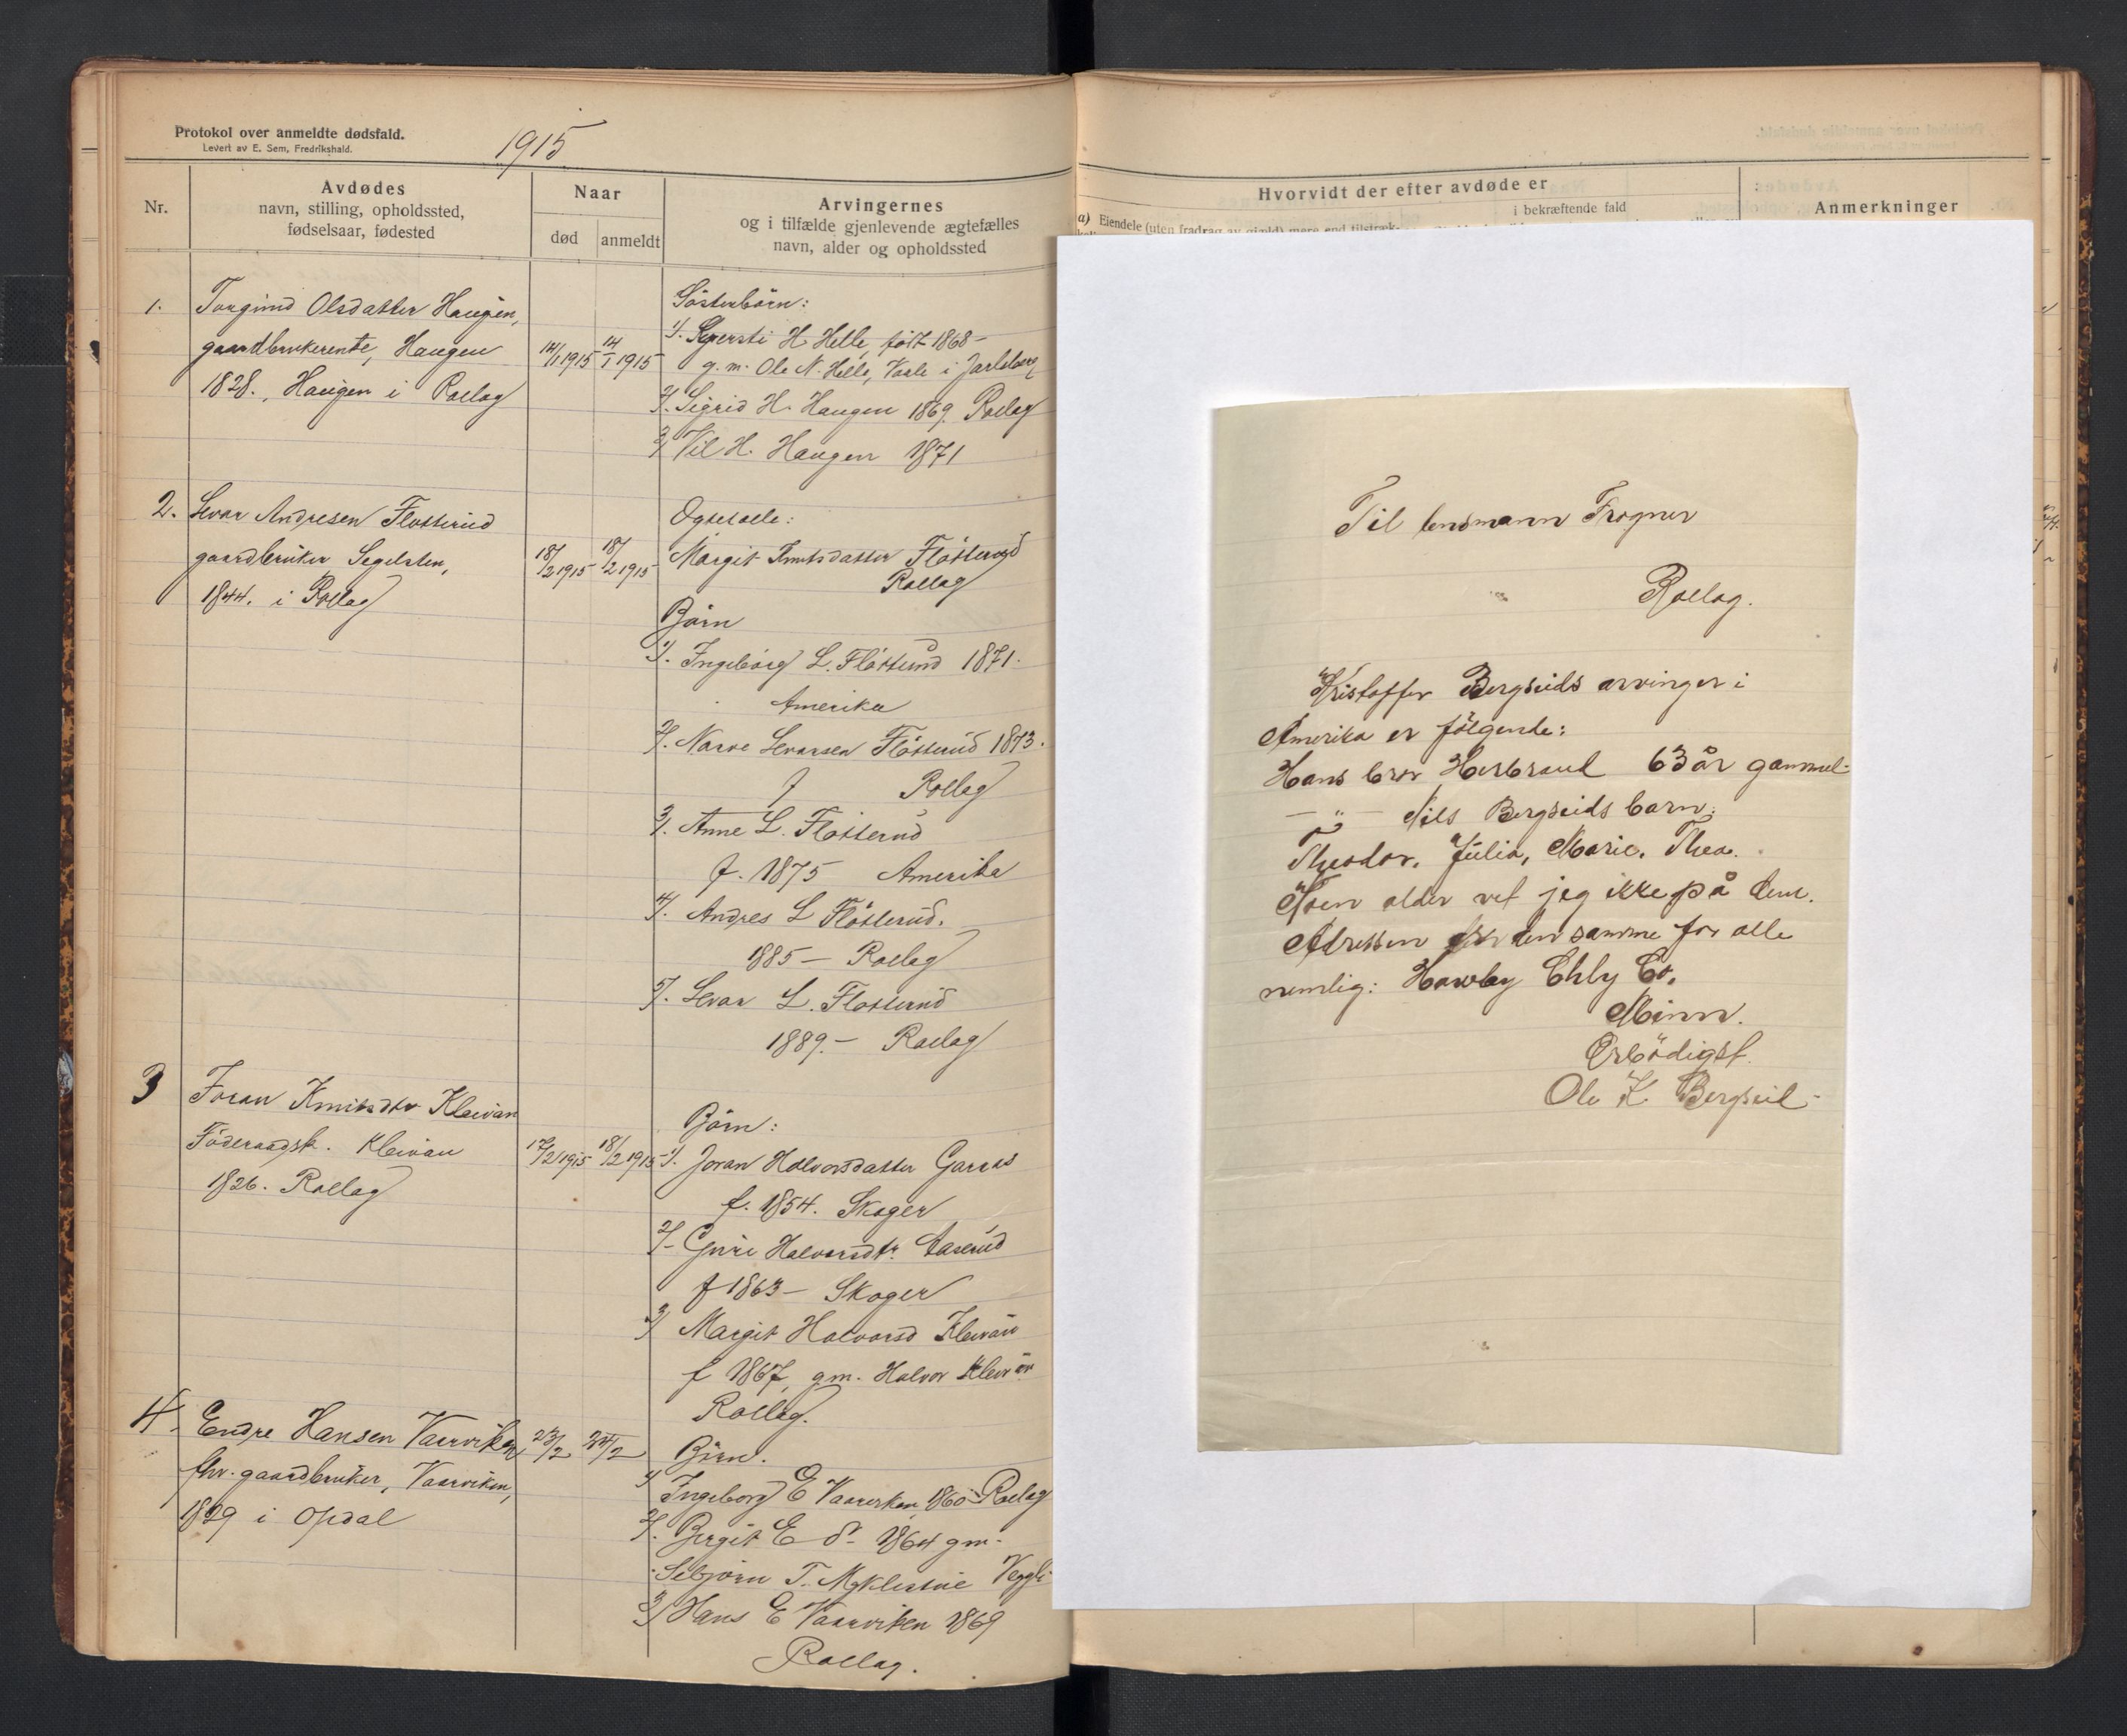 Protokol over anmeldte dødsfald.
Levert av E. Sem, Fredrikshald.
1915
Nr.
Avdødes
navn, stilling, opholdssted,
fødselsaar, fødested
Naar
død
anmeldt
Arvingernes
og i tilfælde gjenlevende ægtefælles
navn, alder og opholdssted
1. Torgund Olsdatter Haugen,
gaardbrukerente, Haugen
1828., Haugen i Rollag
14/1 1915
14/1 1915
Søsterbørn:
1/. Sigersti H. Helle født 1868 –
g. m. Ole N. Helle, Vaale i Jarlsberg
2/. Sigrid H. Haugen 1869. Rollag
3/ Kil H. Haugen 1871
2. Levor Andresen Fløtterud
gaardbruker Segelsten,
1844. i Rollag
18/2 1915
18/2 1915
Margit Knutsdatter Fløtterud
Rollag
Børn
1/. Ingeborg L. Fløtterud 1871.
Amerika
2/. Narve Levorsen Fløtterud 1873.
Rollag
3/. Anne L. Fløtterud
f. 1875 Amerika
4/. Andres L Fløtterud.
1885 – Rollag
5/. Levor L. Fløtterud
1889. – Rollag
3 Joran Knutsdtr Kleivan
Føderaadsk. Kleivan
1826. Rollag
17/2 1915
18/2 1915
Børn:
1/. Joran Halvorsdatter Garaas
f. 1854. Skoger
2/- Guri Halvorsdtr. Aaserud
f 1863 – Skoger
3/ Margit Halvorsd Kleivan
f 1867, gm. Halvor Kleivan
Rollag.
4. Endre Hansen Vaarviken
fhv. gaardbruker, Vaarviken,
1829 i Opdal
23/2
24/2
Børn.
1/ Ingeborg E Vaarviken 1860 – Rollag
2/. Birgit E do 1864 gm.
Sebjørn T. Myklestue Veggli
3/ Hans E Vaarviken 1869
Rollag.
Hvorvidt der efter avdøde er
i bekræftende fald
a) Eiendele (uten fradrag av gjæld) mere end tilstræk-
Anmerkninger
Til lensmann Frogner
Rollag.
Kristoffer Bergseids arvinger i
Amerika er følgende:
Hans bror Herbrand 63 år gammel –
— „ — Nils Bergseids barn:
Theodor, Julia, Marie, Thea.
Noen alder vet jeg ikke på dem.
Adressen er den samme for alle
nemlig: Hawley Chly Co.
Minn.
Erbødigst.
Ole K. Bergseid –